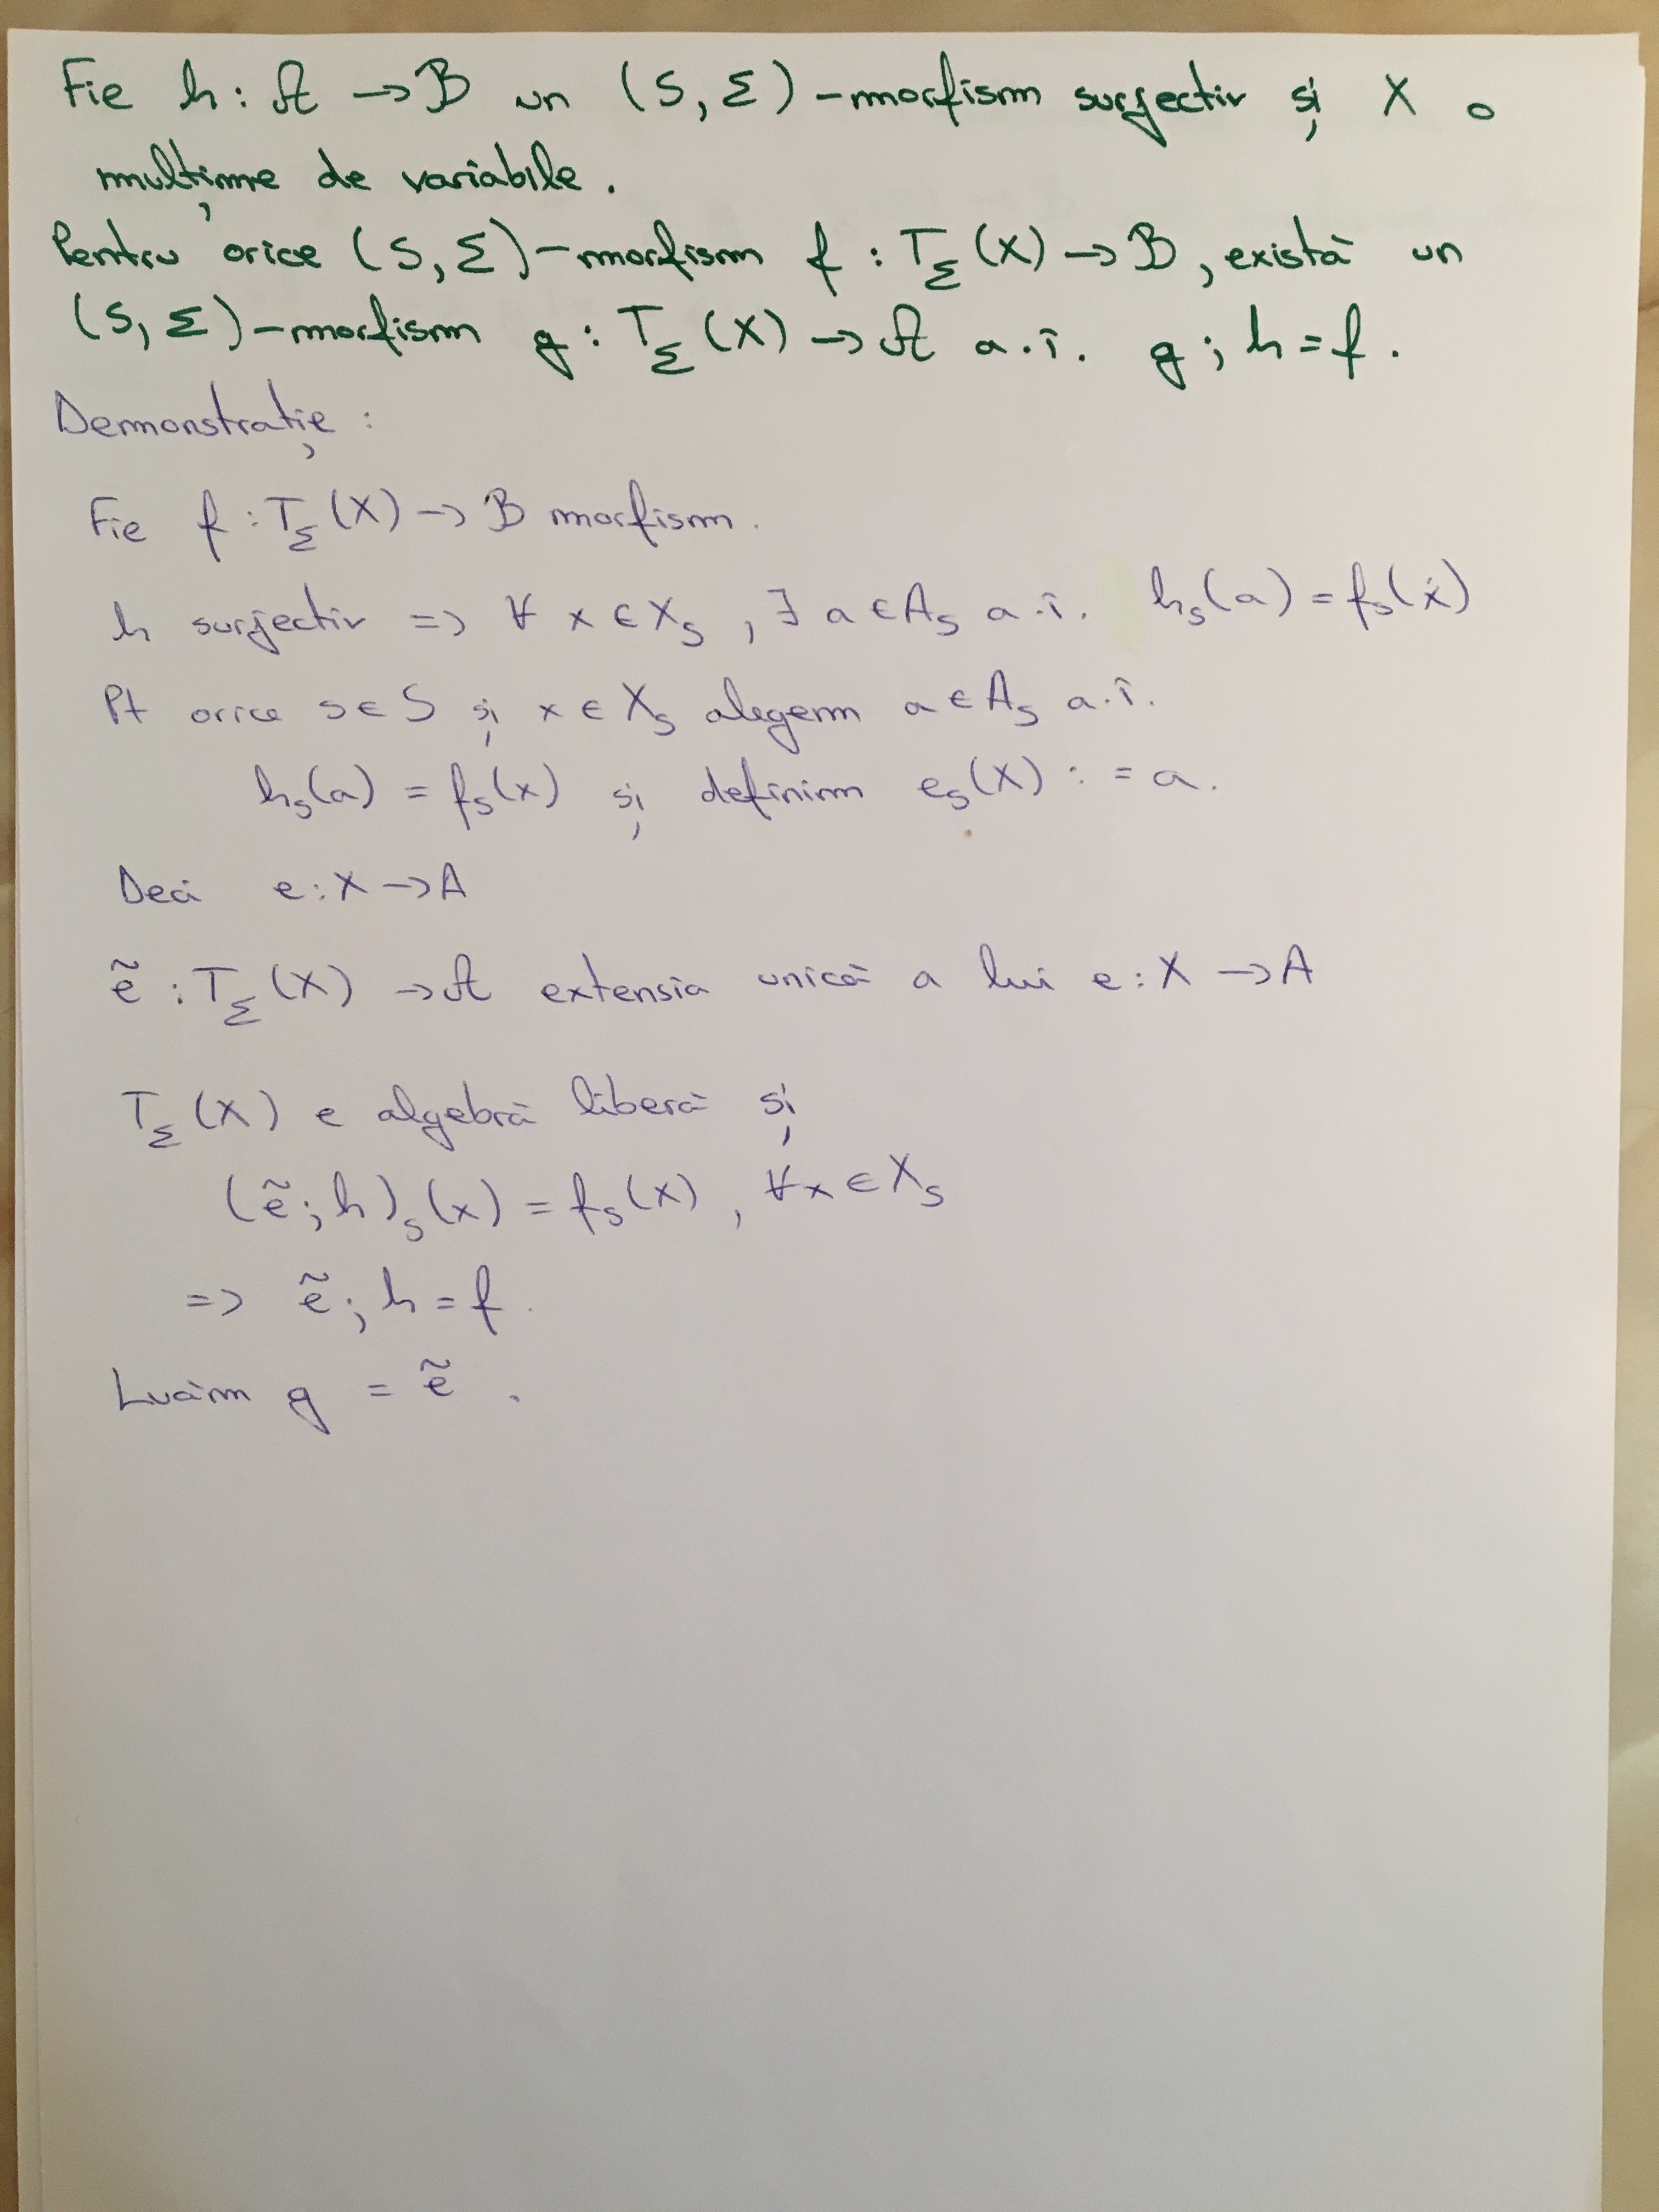 Fie h: 𝒜 → ℬ un (S, Σ) - morfism surjectiv și X o
mulțime de variabile.
Pentru orice (S, Σ) - morfism f : T_Σ (X) → ℬ, există un
(S, Σ) - morfism g : T_Σ (X) → 𝒜 a.î. g ; h = f.
Demonstrație :
Fie f : T_Σ (X) → ℬ morfism.
h surjectiv => ∀ x ∈ X_s , ∃ a ∈ A_s a.î. h_s(a) = f_s(x)
Pt orice s ∈ S și x ∈ X_s alegem a ∈ A_s a.î.
h_s(a) = f_s(x) și definim e_s(x) : = a.
Deci e : X → A
ẽ : T_Σ (X) → 𝒜 extensia unică a lui e : X → A
T_Σ (X) e algebră liberă și
(ẽ ; h)_s (x) = f_s(x) , ∀ x ∈ X_s
=> ẽ ; h = f.
Luăm g = ẽ .